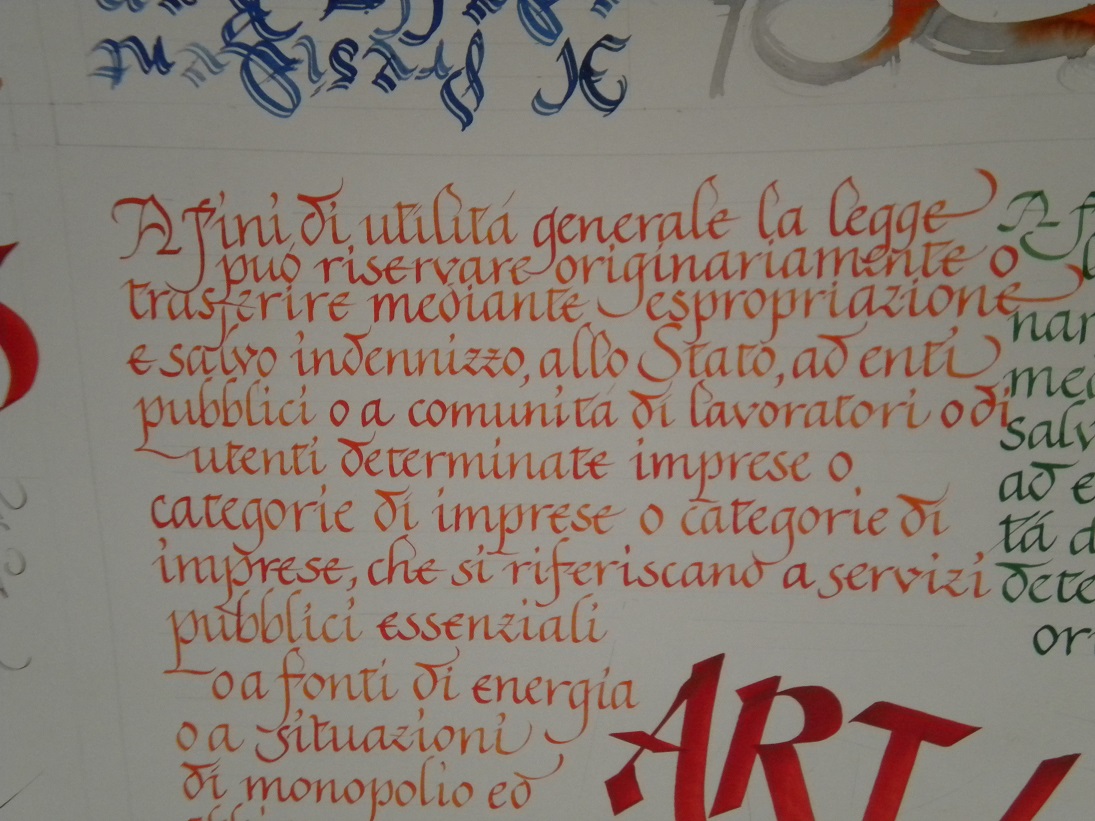 A fini di utilitá generale la legge
può riservare originariamente o
trasferire mediante espropriazione
e salvo indennizzo, allo Stato, ad enti
pubblici o a comunitá di lavoratori o di
utenti determinate imprese o
categorie di imprese o categorie di
imprese, che si riferiscano a servizi
pubblici essenziali
o a fonti di energia
o a situazioni
di monopolio ed
ART
A f
nar
med
salv
ad e
tá d
dete
or